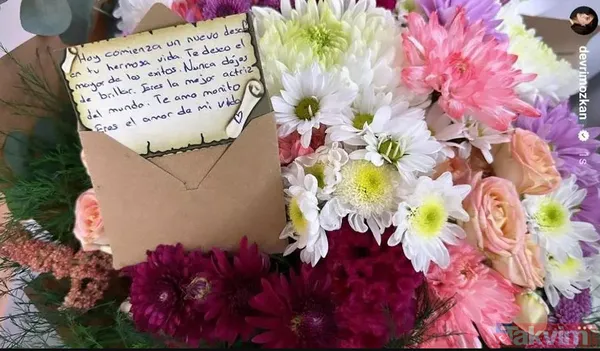 Hoy comienza un nuevo desafio
en tu hermosa vida. Te deseo el
mayor de los exitos. Nunca dejes
de brillar. Sos la mejor actriz
del mundo. Te amo monito
Eres el amor de mi vida
devrimozkan
takvim